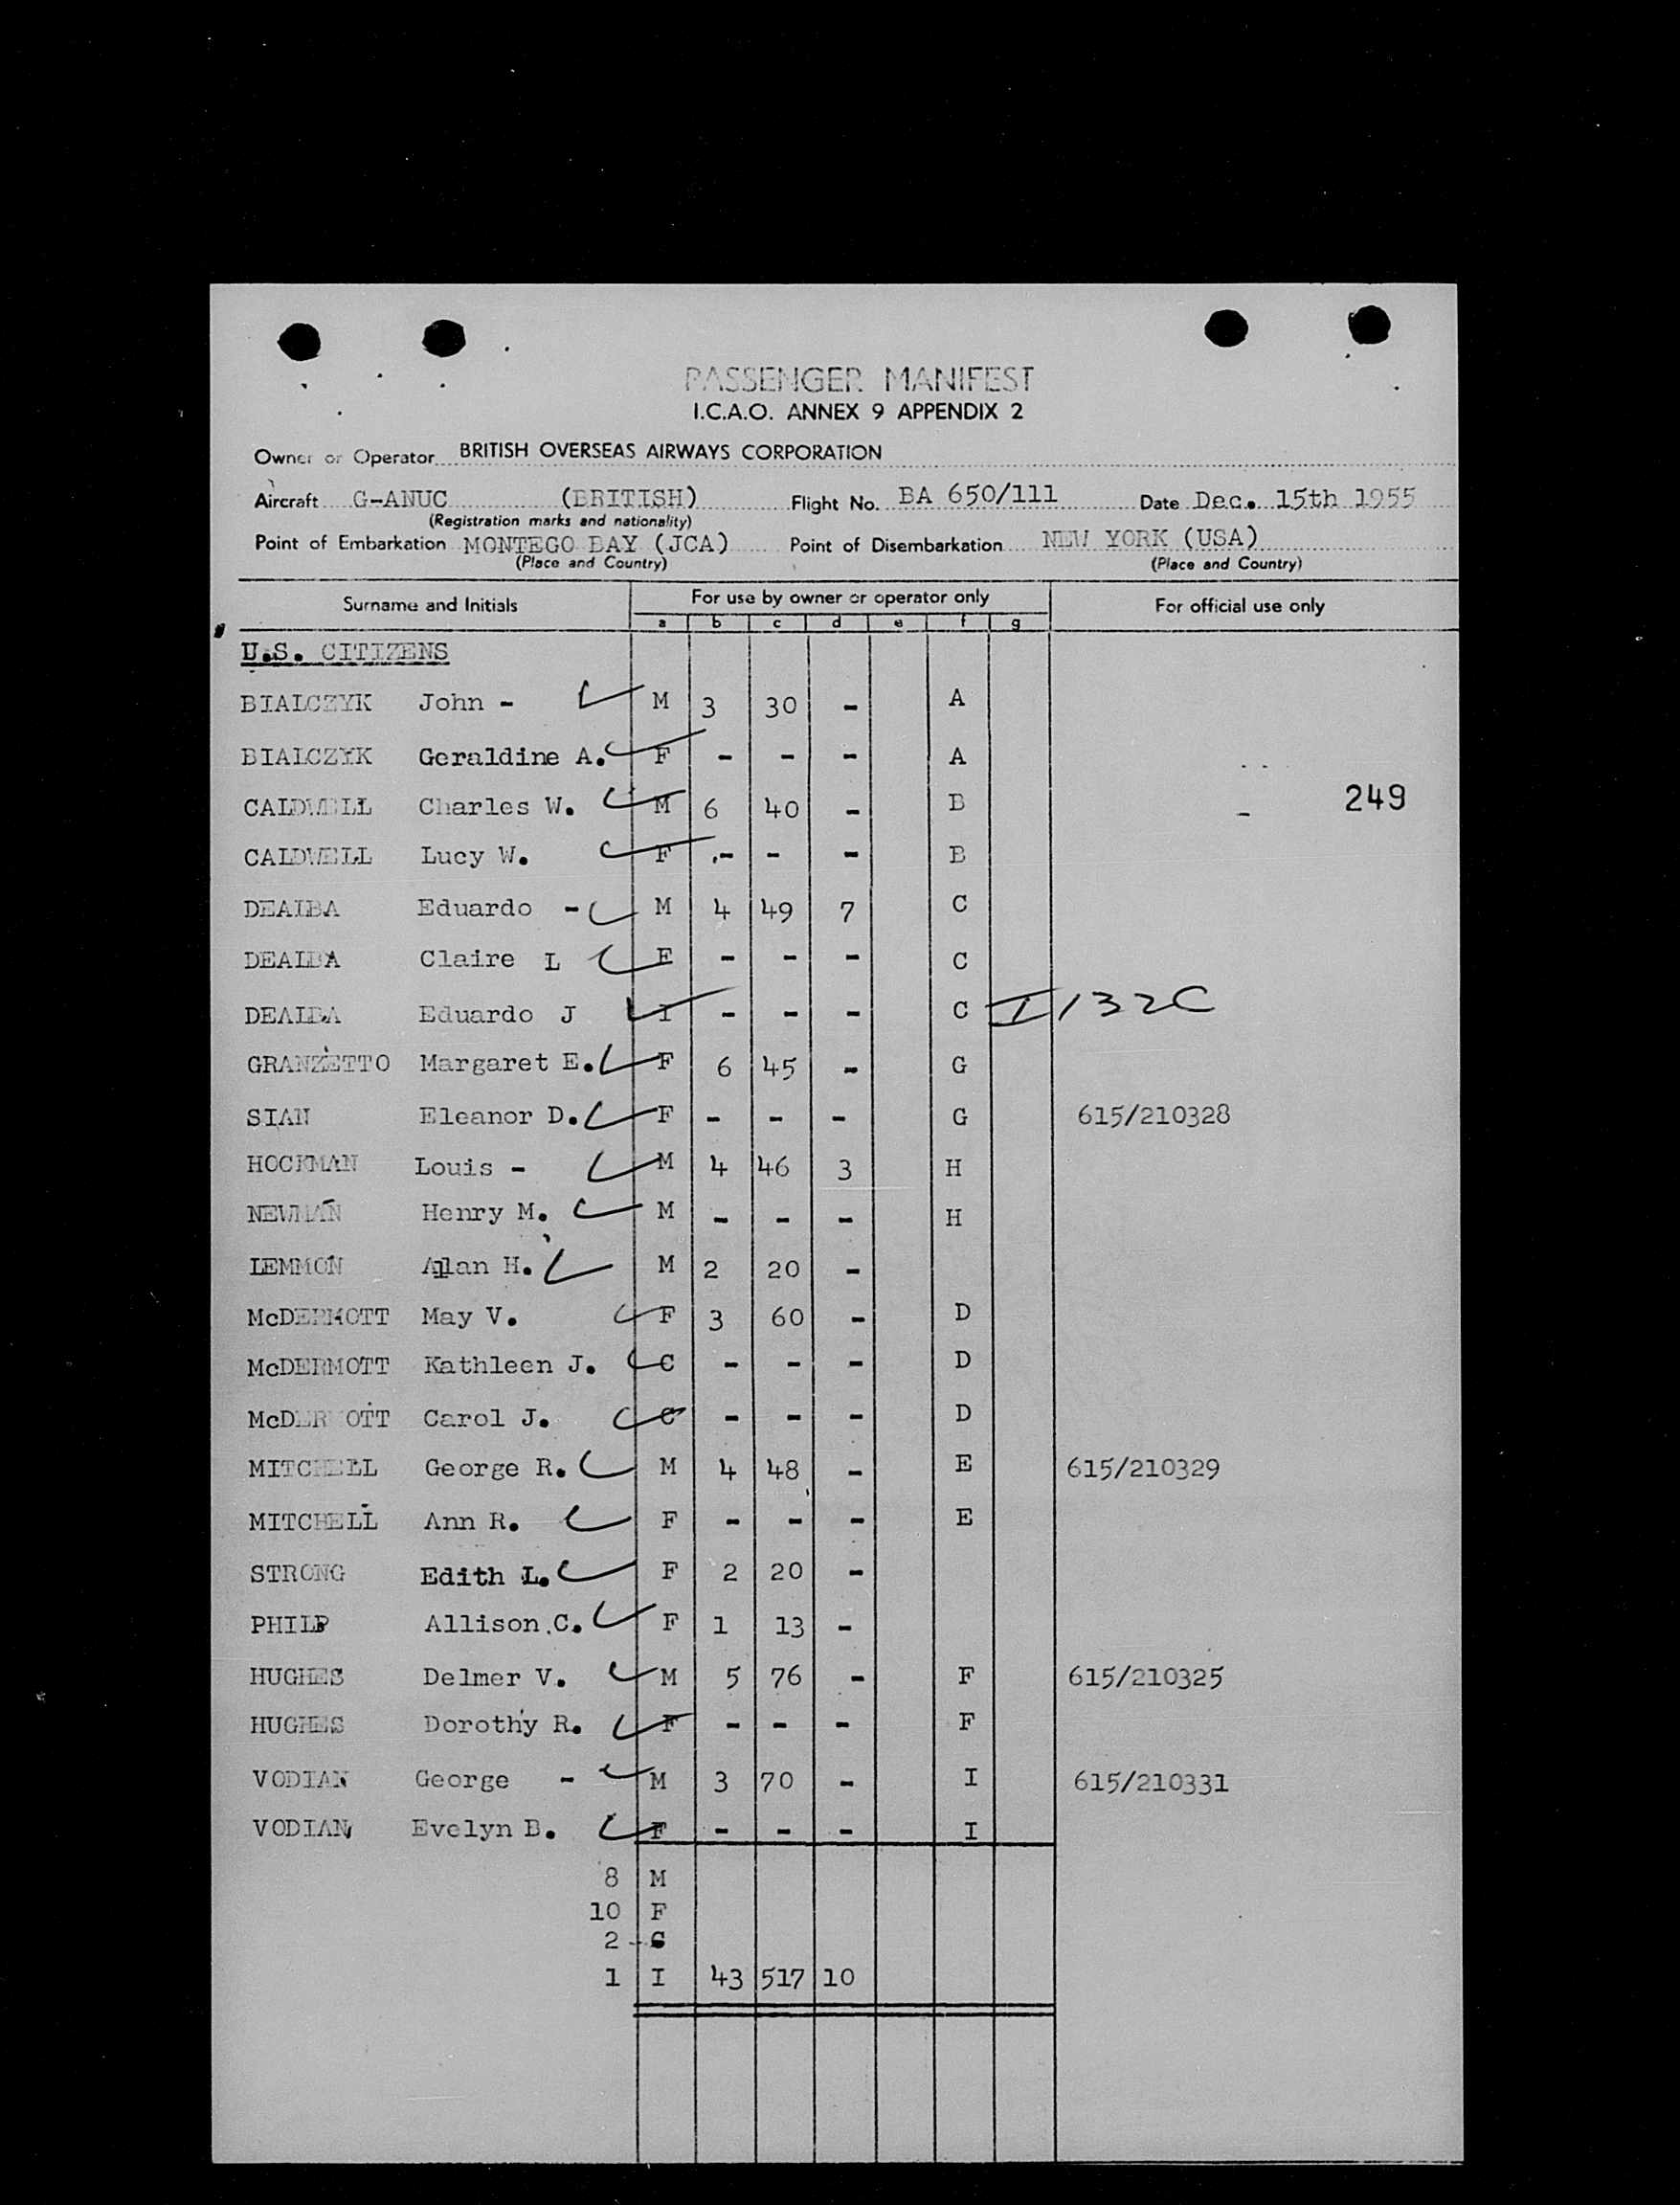 PASSENGER MANIFEST
I.C.A.O. ANNEX 9 APPENDIX 2
Owner or Operator BRITISH OVERSEAS AIRWAYS CORPORATION
Aircraft G-ANUC (BRITISH) Flight No. BA 650/111 Date Dec. 15th 1955
(Registration marks and nationality)
Point of Embarkation MONTEGO BAY (JCA) Point of Disembarkation NEW YORK (USA)
(Place and Country) (Place and Country)
Surname and Initials For use by owner or operator only For official use only
a b c d e f g
U.S. CITIZENS
BIALCZYK John - M 3 30 - A
BIALCZYK Geraldine A. F - - - A
CALDWELL Charles W. M 6 40 - B 249
CALDWELL Lucy W. F - - - B
DEALBA Eduardo - M 4 49 7 C
DEALBA Claire L F - - - C
DEALBA Eduardo J I - - - C I 132C
GRANZETTO Margaret E. F 6 45 - G
SIAN Eleanor D. F - - - G 615/210328
HOCKMAN Louis - M 4 46 3 H
NEWMAN Henry M. M - - - H
LEMMON Allan H. M 2 20 -
McDERMOTT May V. F 3 60 - D
McDERMOTT Kathleen J. C - - - D
McDERMOTT Carol J. C - - - D
MITCHELL George R. M 4 48 - E 615/210329
MITCHELL Ann R. F - - - E
STRONG Edith L. F 2 20 -
PHILP Allison C. F 1 13 -
HUGHES Delmer V. M 5 76 - F 615/210325
HUGHES Dorothy R. F - - - F
VODIAN George - M 3 70 - I 615/210331
VODIAN Evelyn B. F - - - I
8 M
10 F
2 C
1 I 43 517 10